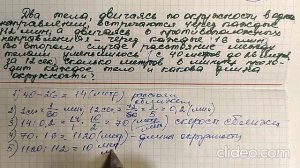 Два тела, двигаясь по окружности в одном
направлении, встречаются через каждые
112 мин, а двигаясь в противоположных
направлениях - через каждые 16 мин.
во втором случае расстояние между
телами уменьшилось с 40 метров до 26 метров
за 12 сек. Сколько метров в минуту прохо-
дит каждое тело и какова длина
окружности?
1) 40-26 = 14 (метр)
2) 1 сек = 1/60 мин, 12 сек = 12/60 = 1/5 = 0,2 мин.
3) 14:0,2 = 70 (метр) скорость сближ
4) 70·16 = 1120 (метр) - длина окружности
5) 1120:112 = 10 мет
veed.io